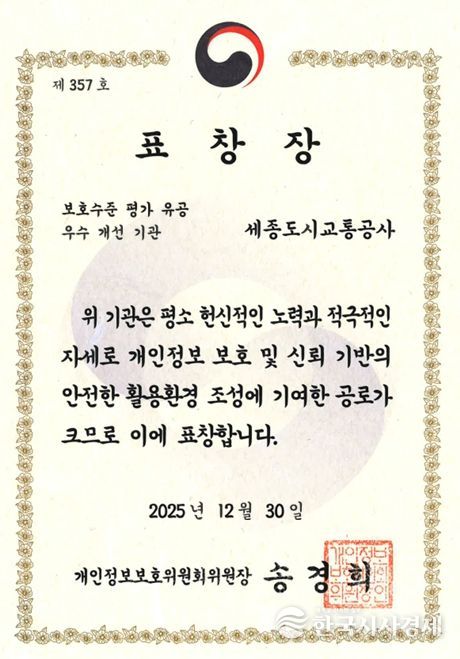 제 357 호
표 창 장
보호수준 평가 유공
우수 개선 기관
세종도시교통공사
위 기관은 평소 헌신적인 노력과 적극적인
자세로 개인정보 보호 및 신뢰 기반의
안전한 활용환경 조성에 기여한 공로가
크므로 이에 표창합니다.
2025년 12월 30일
개인정보보호위원회위원장 송경희
개인정보
보호위원회
위원장인
한국시사경제